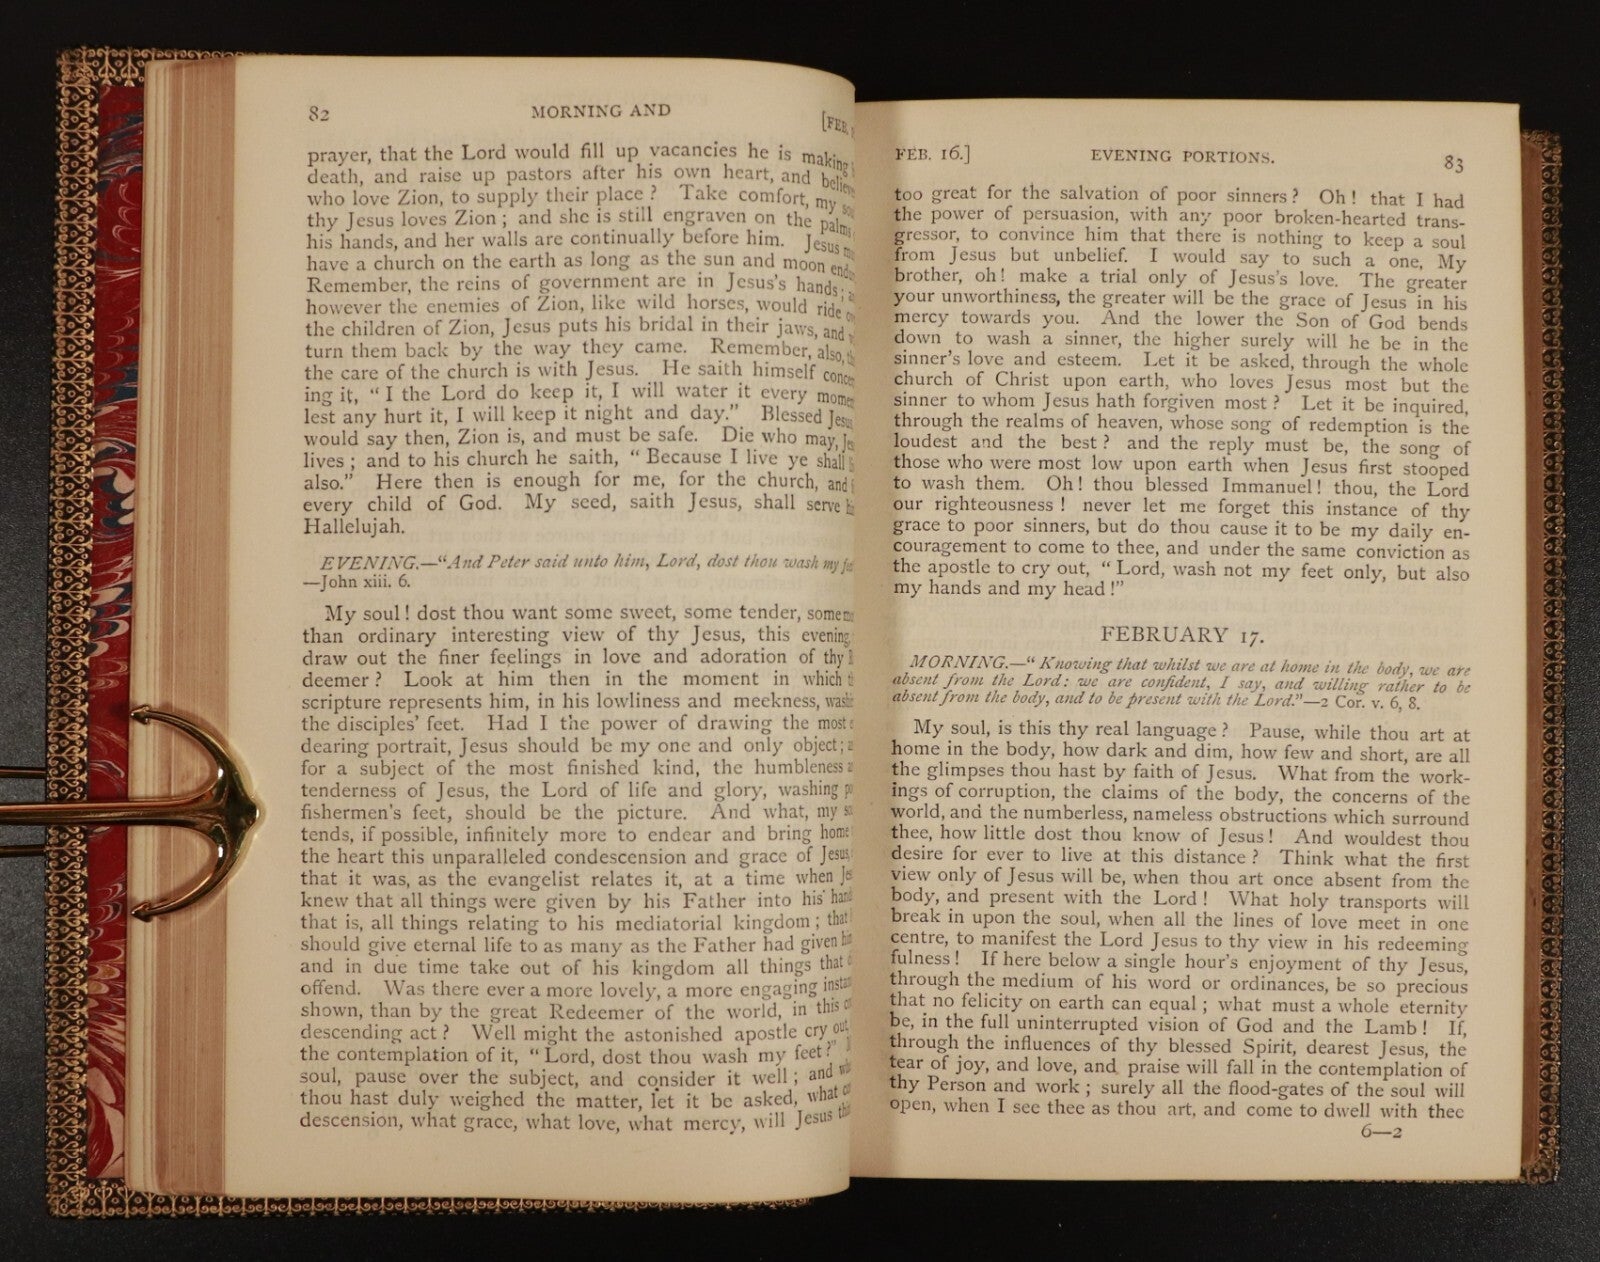 82 MORNING AND [FEB.
prayer, that the Lord would fill up vacancies he is making
death, and raise up pastors after his own heart, and
who love Zion, to supply their place ? Take comfort, my
thy Jesus loves Zion ; and she is still engraven on the palms
his hands, and her walls are continually before him. Jesus
have a church on the earth as long as the sun and moon
Remember, the reins of government are in Jesus's hands ;
however the enemies of Zion, like wild horses, would ride
the children of Zion, Jesus puts his bridal in their jaws, and
turn them back by the way they came. Remember, also,
the care of the church is with Jesus. He saith himself
ing it, “ I the Lord do keep it, I will water it every
lest any hurt it, I will keep it night and day.” Blessed
would say then, Zion is, and must be safe. Die who may,
lives ; and to his church he saith, “ Because I live ye shall
also.” Here then is enough for me, for the church, and
every child of God. My seed, saith Jesus, shall serve
Hallelujah.
EVENING.—“And Peter said unto him, Lord, dost thou wash my
—John xiii. 6.
My soul ! dost thou want some sweet, some tender, some
than ordinary interesting view of thy Jesus, this evening,
draw out the finer feelings in love and adoration of thy
deemer ? Look at him then in the moment in which
scripture represents him, in his lowliness and meekness,
the disciples' feet. Had I the power of drawing the most
dearing portrait, Jesus should be my one and only object ;
for a subject of the most finished kind, the humbleness
tenderness of Jesus, the Lord of life and glory, washing
fishermen's feet, should be the picture. And what, my
tends, if possible, infinitely more to endear and bring home
the heart this unparalleled condescension and grace of Jesus,
that it was, as the evangelist relates it, at a time when
knew that all things were given by his Father into his
that is, all things relating to his mediatorial kingdom ; that
should give eternal life to as many as the Father had given
and in due time take out of his kingdom all things that
offend. Was there ever a more lovely, a more engaging
shown, than by the great Redeemer of the world, in this
descending act ? Well might the astonished apostle cry out,
the contemplation of it, “ Lord, dost thou wash my feet ?”
soul, pause over the subject, and consider it well ; and
thou hast duly weighed the matter, let it be asked, what
descension, what grace, what love, what mercy, will Jesus
FEB. 16.] EVENING PORTIONS. 83
too great for the salvation of poor sinners ? Oh ! that I had
the power of persuasion, with any poor broken-hearted trans-
gressor, to convince him that there is nothing to keep a soul
from Jesus but unbelief. I would say to such a one, My
brother, oh ! make a trial only of Jesus's love. The greater
your unworthiness, the greater will be the grace of Jesus in his
mercy towards you. And the lower the Son of God bends
down to wash a sinner, the higher surely will he be in the
sinner's love and esteem. Let it be asked, through the whole
church of Christ upon earth, who loves Jesus most but the
sinner to whom Jesus hath forgiven most ? Let it be inquired,
through the realms of heaven, whose song of redemption is the
loudest and the best ? and the reply must be, the song of
those who were most low upon earth when Jesus first stooped
to wash them. Oh ! thou blessed Immanuel ! thou, the Lord
our righteousness ! never let me forget this instance of thy
grace to poor sinners, but do thou cause it to be my daily en-
couragement to come to thee, and under the same conviction as
the apostle to cry out, “ Lord, wash not my feet only, but also
my hands and my head !”
FEBRUARY 17.
MORNING.—“ Knowing that whilst we are at home in the body, we are
absent from the Lord : we are confident, I say, and willing rather to be
absent from the body, and to be present with the Lord.”—2 Cor. v. 6, 8.
My soul, is this thy real language ? Pause, while thou art at
home in the body, how dark and dim, how few and short, are all
the glimpses thou hast by faith of Jesus. What from the work-
ings of corruption, the claims of the body, the concerns of the
world, and the numberless, nameless obstructions which surround
thee, how little dost thou know of Jesus ! And wouldest thou
desire for ever to live at this distance ? Think what the first
view only of Jesus will be, when thou art once absent from the
body, and present with the Lord ! What holy transports will
break in upon the soul, when all the lines of love meet in one
centre, to manifest the Lord Jesus to thy view in his redeeming
fulness ! If here below a single hour's enjoyment of thy Jesus,
through the medium of his word or ordinances, be so precious
that no felicity on earth can equal ; what must a whole eternity
be, in the full uninterrupted vision of God and the Lamb ! If,
through the influences of thy blessed Spirit, dearest Jesus, the
tear of joy, and love, and praise will fall in the contemplation of
thy Person and work ; surely all the flood-gates of the soul will
open, when I see thee as thou art, and come to dwell with thee
6—2